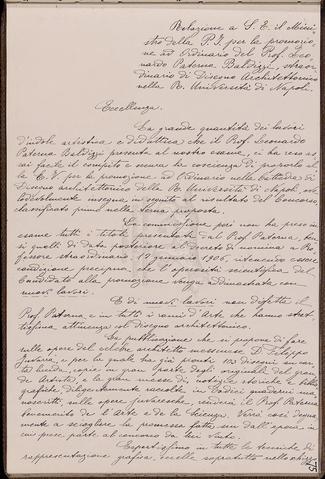 Relazione a S. E. il Mini-
stro della P. I. per la promozio-
ne ad Ordinario del Prof. Leo-
nardo Paterna Baldizzi, straor-
dinario di Disegno Architettonico
nella R. Università di Napoli.
Eccellenza.
La grande quantità dei lavori
d'indole artistica e didattica che il Prof. Leonardo
Paterna Baldizzi presenta al nostro esame, ci ha reso as-
sai facile il compito e sicura la coscienza di proporlo al-
la E. V. per la promozione ad Ordinario nella Cattedra di
Disegno architettonico della R. Università di Napoli, ove
lodevolmente insegna in seguito al resultato del Concorso,
classificato primo nella terna proposta.
La commissione poi non ha preso in
esame tutti i titoli presentati dal Prof. Paterna, ben-
sì quelli di data posteriore al decreto di nomina a Pro-
fessore straordinario, 1º gennaio 1906, ritenendo essere
condizione precipua che l'operosità scientifica del
Candidato alla promozione venga dimostrata con
nuovi lavori.
E di nuovi lavori non difetta il
Prof. Paterna e in tutti i rami d'Arte che hanno stret-
tissima attinenza col Disegno architettonico.
La pubblicazione che si propone di fare
sulle opere del celebre architetto messinese D. Filippo
Juvara, e per la quale ha già pronti 193 disegni con mol-
ta bravura, copie in gran parte degli originali del gran-
de Artista, e la gran messe di notizie storiche e biblio-
grafiche, diligentemente raccolte in Codici moderni ma-
noscritti, sulle opere juvaresche, renderà il Prof. Paterna
benemerito de l'Arte e de la Scienza. Verrà così degna-
mente a sciogliere la promessa fatta, sin dall'epoca in
cui prese parte al concorso da lui vinto.
Espertissimo in tutte le tecniche di
rappresentazione grafica, eccelle sopratutto nello
75